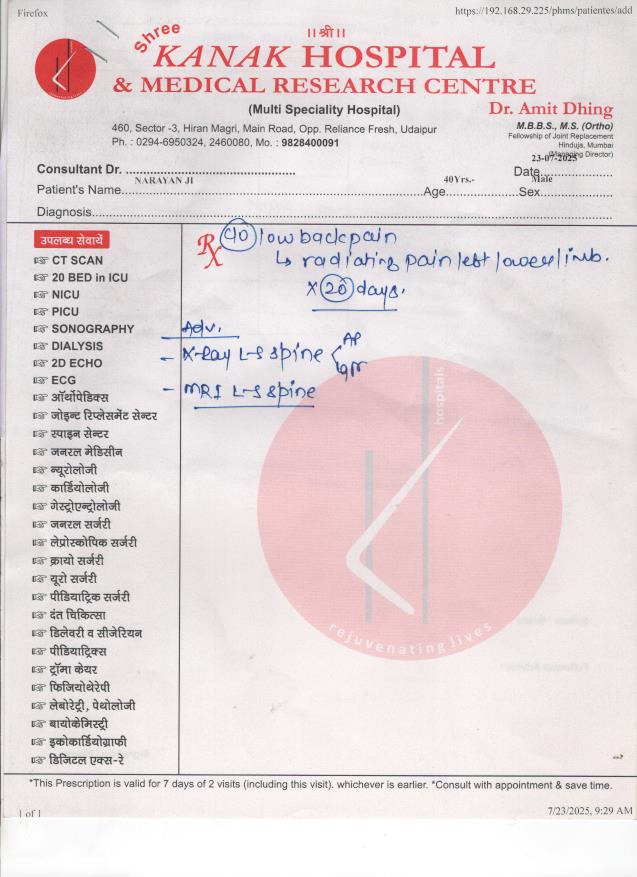 Firefox
https://192.168.29.225/phms/patientes/add
Shree
।। श्री ।।
KANAK HOSPITAL
& MEDICAL RESEARCH CENTRE
(Multi Speciality Hospital)
Dr. Amit Dhing
M.B.B.S., M.S. (Ortho)
Fellowship of Joint Replacement
Hinduja, Mumbai
(Managing Director)
460, Sector -3, Hiran Magri, Main Road, Opp. Reliance Fresh, Udaipur
Ph. : 0294-6950324, 2460080, Mo. : 9828400091
Consultant Dr. ............................................
Date 23-07-2025
Patient's Name NARAYAN JI Age 40Yrs.- Sex Male
Diagnosis
उपलब्ध सेवायें
CT SCAN
20 BED in ICU
NICU
PICU
SONOGRAPHY
DIALYSIS
2D ECHO
ECG
ऑर्थोपेडिक्स
जोइन्ट रिप्लेसमेंट सेन्टर
स्पाइन सेन्टर
जनरल मेडिसीन
न्यूरोलोजी
कार्डियोलोजी
गेस्ट्रोएन्ट्रोलोजी
जनरल सर्जरी
लेप्रोस्कोपिक सर्जरी
क्रायो सर्जरी
यूरो सर्जरी
पीडियाट्रिक सर्जरी
दंत चिकित्सा
डिलेवरी व सीजेरियन
पीडियाट्रिक्स
ट्रॉमा केयर
फिजियोथेरेपी
लेबोरेट्री, पेथोलोजी
बायोकेमिस्ट्री
इकोकार्डियोग्राफी
डिजिटल एक्स-रे
Rx C/O low back pain
↳ radiating pain left lower limb.
x 20 days.
Adv.
- X-ray L-S spine < AP
- MRI L-S spine
hospitals
rejuvenating lives
*This Prescription is valid for 7 days of 2 visits (including this visit). whichever is earlier. *Consult with appointment & save time.
1 of 1
7/23/2025, 9:29 AM